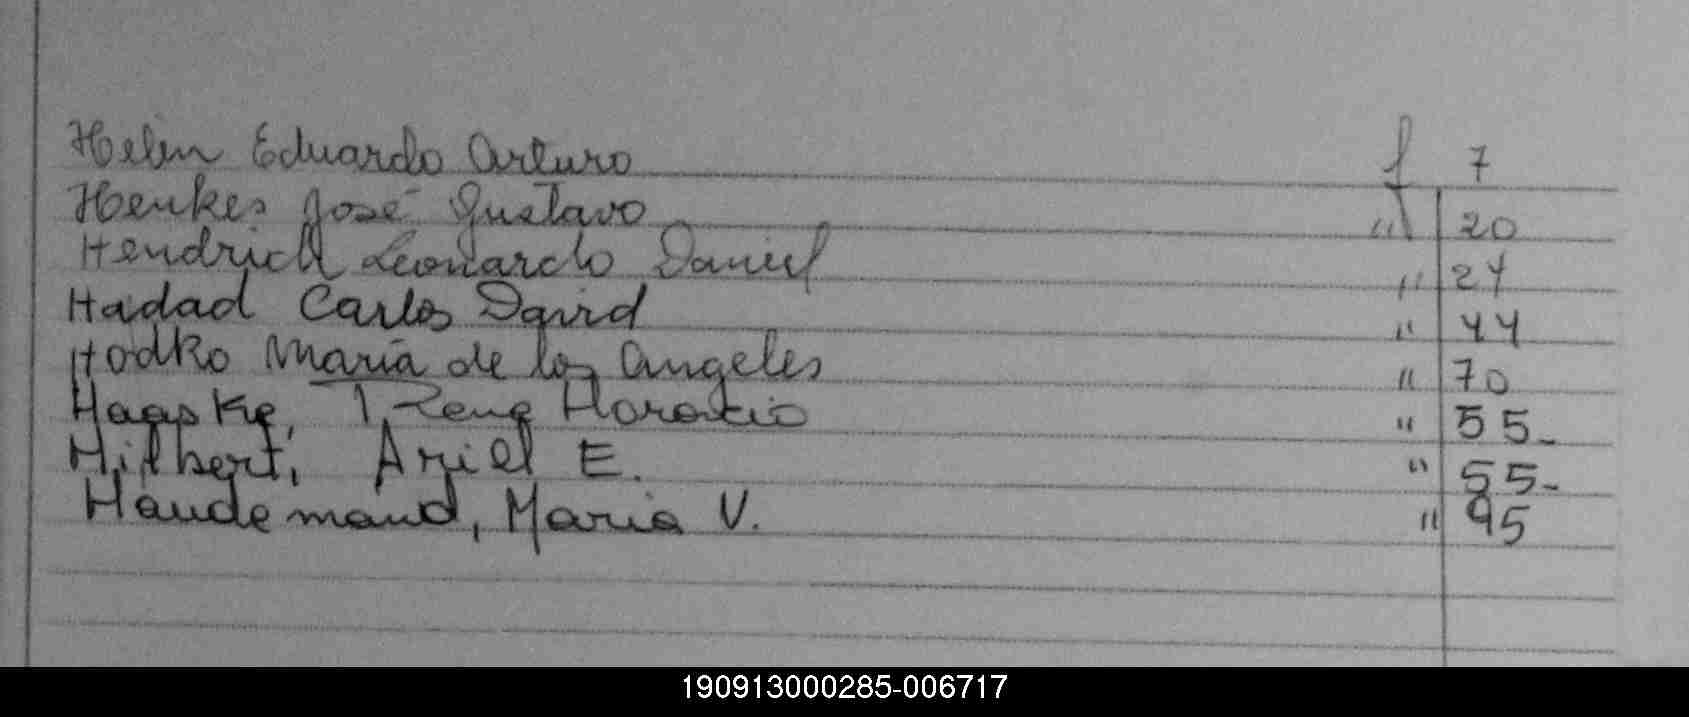 Helin Eduardo Arturo f 7
Henkes José Gustavo " 20
Hendrich Leonardo Daniel " 24
Hadad Carlos David " 44
Hodko María de los Angeles " 70
Haaske, Rene Horacio " 55-
Hilbert, Ariel E. " 55-
Haudemand, Maria V. " 95
190913000285-006717